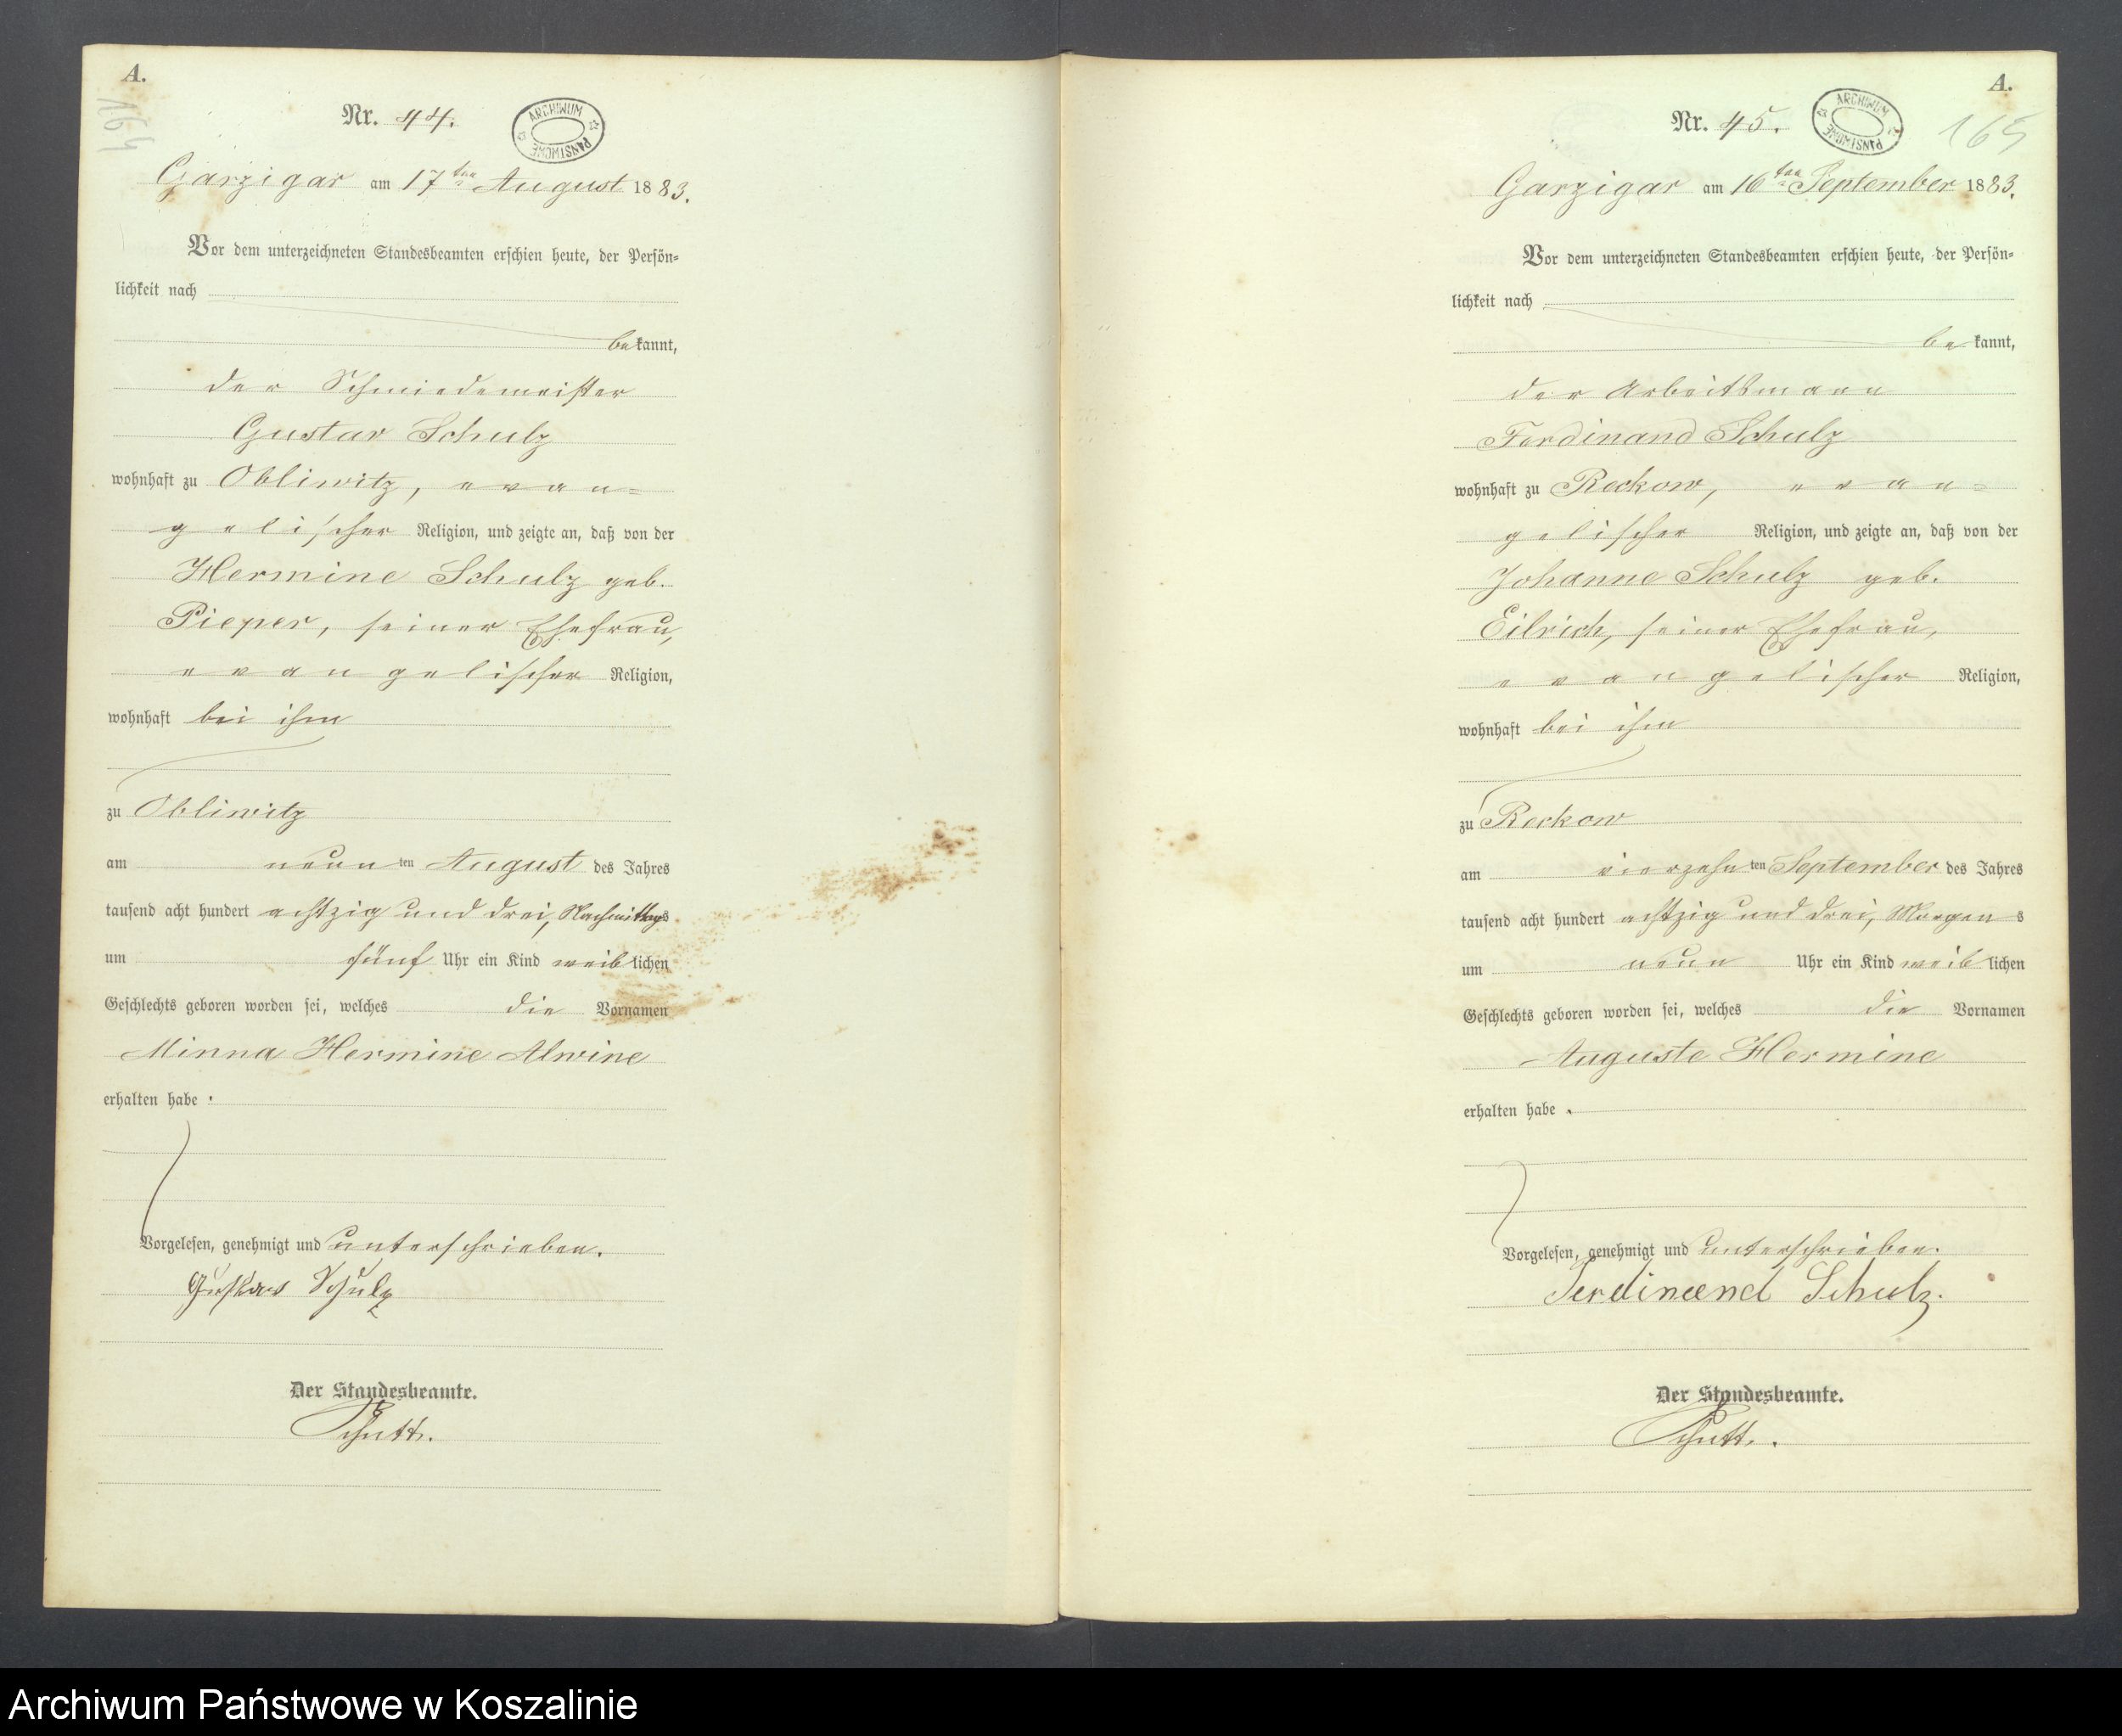 A.
164
Nr. 44.
ARCHIWUM PAŃSTWOWE
Garzigar am 17ten August 1883.
Vor dem unterzeichneten Standesbeamten erschien heute, der Persön=
lichkeit nach
bekannt,
der Schmiedemeister
Gustav Schulz
wohnhaft zu Obliwitz, evan=
gelischer Religion, und zeigte an, daß von der
Hermine Schulz geb.
Pieper, seiner Ehefrau,
evangelischer Religion,
wohnhaft bei ihm
zu Obliwitz
am neunten August des Jahres
tausend acht hundert achtzig und drei, Nachmittags
um fünf Uhr ein Kind weiblichen
Geschlechts geboren worden sei, welches die Vornamen
Minna Hermine Alwine
erhalten habe.
Vorgelesen, genehmigt und unterschrieben.
Gustav Schulz
Der Standesbeamte.
A.
165
Nr. 45.
ARCHIWUM PAŃSTWOWE
Garzigar am 16ten September 1883.
Vor dem unterzeichneten Standesbeamten erschien heute, der Persön=
lichkeit nach
bekannt,
der Arbeitsmann
Ferdinand Schulz
wohnhaft zu Reckow, evan=
gelischer Religion, und zeigte an, daß von der
Johanne Schulz geb.
Eilrich, seiner Ehefrau,
evangelischer Religion,
wohnhaft bei ihm
zu Reckow
am vierzehnten September des Jahres
tausend acht hundert achtzig und drei, Morgens
um neun Uhr ein Kind weiblichen
Geschlechts geboren worden sei, welches die Vornamen
Auguste Hermine
erhalten habe.
Vorgelesen, genehmigt und unterschrieben.
Ferdinand Schulz.
Der Standesbeamte.
Archiwum Państwowe w Koszalinie